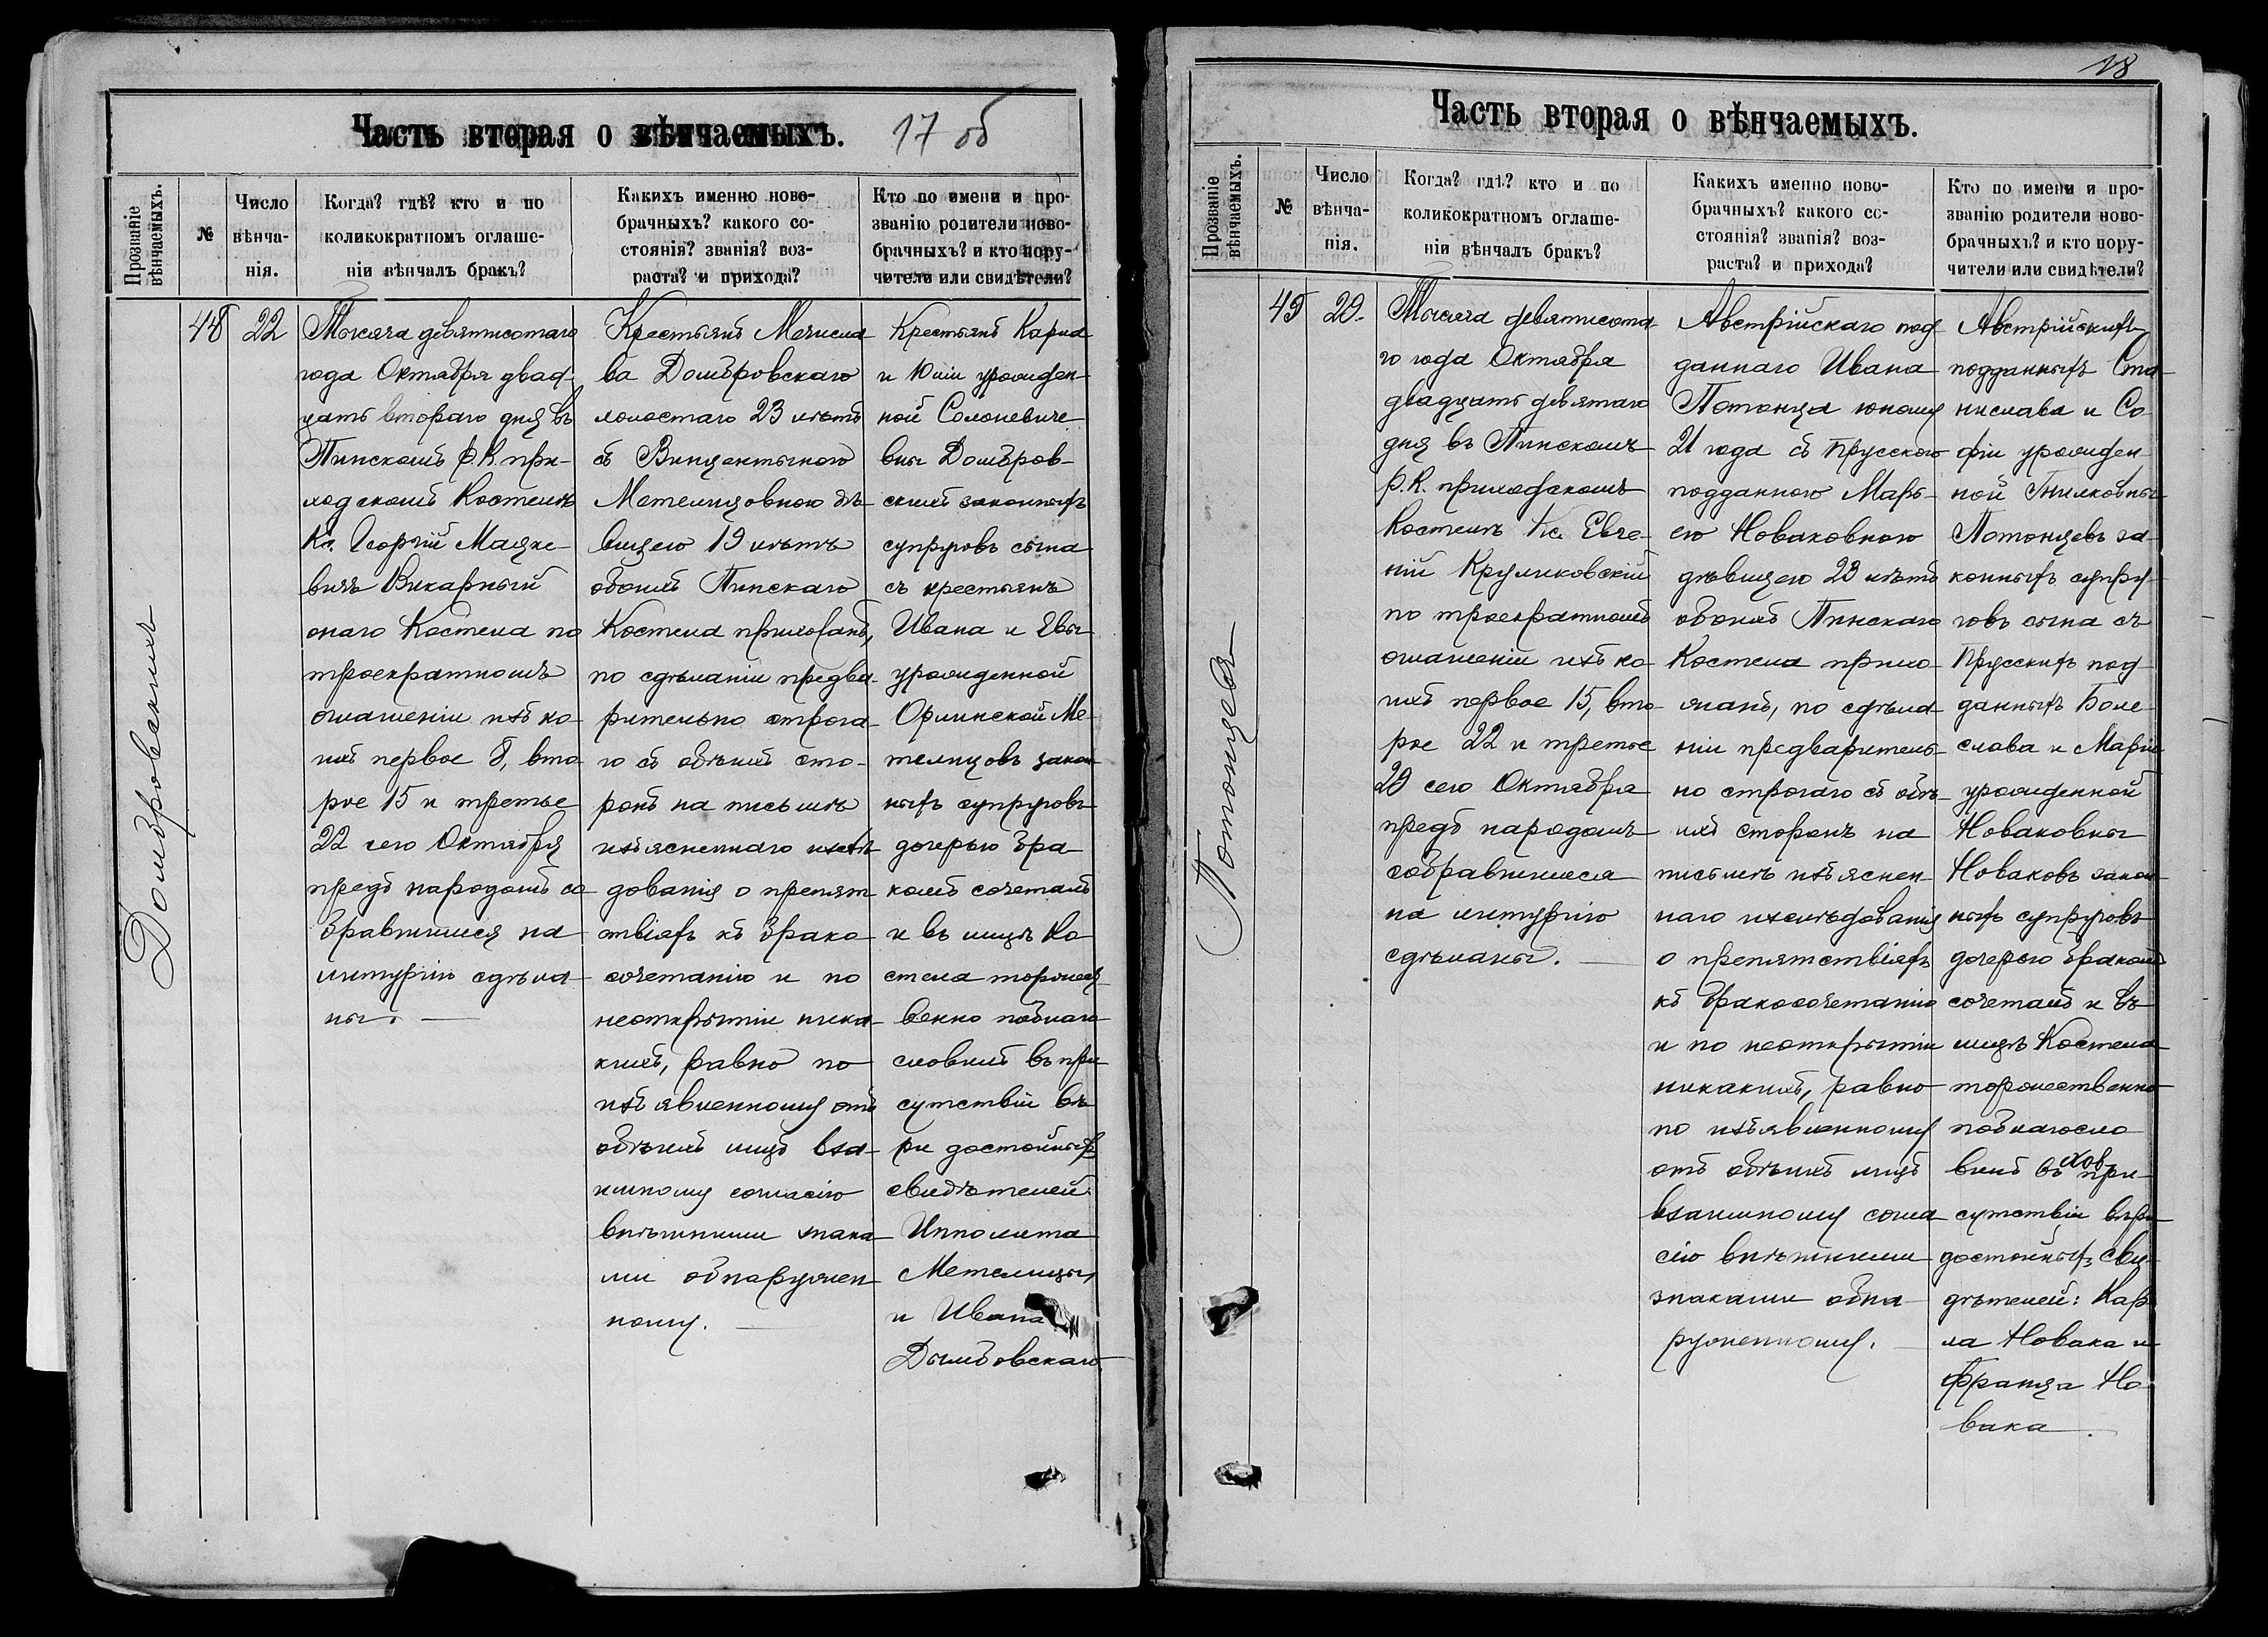 Часть вторая о вѣнчаемыхъ.
17 об
Прозваніе вѣнчаемыхъ.
№
Число вѣнча-
нія.
Когда? гдѣ? кто и по
коликократномъ оглаше-
ніи вѣнчалъ бракъ?
Каких именно ново-
брачныхъ? какого со-
стоянія? званія? воз-
раста? и прихода?
Кто по имени и про-
званію родители ново-
брачныхъ? и кто пору-
чители или свидѣтели?
Домбровскихъ
48
22
Тысяча девятисотаго
года Октября двад-
цать втораго дня въ
Пинскомъ Р.К. при-
ходскомъ Костелѣ
Кс. Георгій Мацке-
вичъ Викарный
онаго Костела по
троекратномъ
оглашеніи изъ ко-
ихъ первое 8, вто
рое 15 и третье
22 сего Октября
предъ народомъ со
бравшимся на
литургію сдѣла-
ны.
Крестьянъ Мечисла
ва Домбровскаго
холостаго 23 лѣтъ
съ Винцентыною
Метелицовною дѣ
вицею 19 лѣтъ
обоихъ Пинскаго
Костела прихожанъ,
по сдѣланіи предва-
рительно строга-
го съ обѣихъ сто-
ронъ на письмѣ
изъясненнаго изслѣ
дованія о препят
ствіяхъ къ брако
сочетанію и по
неоткрытіи ника-
кихъ, равно по
изъявленному отъ
обѣихъ лицъ вза-
имному согласію
внѣшними знака
ми обнаружен
ному.
Крестьянъ Карла
и Юліи урожден-
ной Солоневиче-
вны Домбров-
скихъ законныхъ
супруговъ сына
съ крестьянъ
Ивана и Евы
урожденной
Орлинской Ме-
телицовъ закон
ныхъ супруговъ
дочерью бра
комъ сочеталъ
и въ лицѣ Ко
стела торжест
венно поблаго
словилъ въ при
сутствіи вѣ
ры достойныхъ
свидѣтелей:
Ипполита
Метелицы
и Ивана
Дымбовскаго
18
Часть вторая о вѣнчаемыхъ.
Прозваніе вѣнчаемыхъ.
№
Число
вѣнча-
нія.
Когда? гдѣ? кто и по
коликократномъ оглаше-
ніи вѣнчалъ бракъ?
Каких именно ново-
брачныхъ? какого со-
стоянія? званія? воз-
раста? и прихода?
Кто по имени и про-
званію родители ново-
брачныхъ? и кто пору-
чители или свидѣтели?
49
29.
Тысяча девятисота
го года Октября
двадцать девятаго
дня въ Пинскомъ
Р.К. приходскомъ
Костелѣ Кс. Евге-
ній Круликовскій
по троекратномъ
оглашеніи изъ ко-
ихъ первое 15, вто
рое 22 и третье
29 сего Октября
предъ народомъ
собравшимся
на литургію
сдѣланы.
Австрійскаго под
даннаго Ивана
Потонца юношу
21 года съ Прусскою
подданною Марь-
ею Новаковною
дѣвицею 23 лѣтъ
обоихъ Пинскаго
Костела прихо-
жанъ, по сдѣла
ніи предваритель-
но строгаго съ обѣ-
ихъ сторонъ на
письмѣ изъяснен-
наго изслѣдованія
о препятствіяхъ
къ бракосочетанію
и по неоткрытіи
никакихъ, равно
по изъявленному
отъ обѣихъ лицъ
взаимному согла
сію внѣшними
знаками обна
руженному.
Австрійскихъ
подданныхъ Ста
нислава и Со
фіи урожден
ной Гнилковны
Потонцевъ за
конныхъ супру
говъ сына съ
Прусскихъ под
данныхъ Боле
слава и Маріи
урожденной
Новаковны
Новаковъ закон
ныхъ супруговъ
дочерью бракомъ
сочеталъ и въ
лицѣ Костела
торжественно
поблагосло
вилъ въ при
сутствіи вѣры
достойныхъ сви
дѣтелей: Кар
ла Новака и
Франца Но
вака.